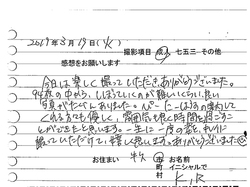 2019年3月19日(火)
撮影項目 成人 七五三・その他
感想をお願いします
今日は楽しく撮っていただき、ありがとうございました。
枚の中から、しぼっていくのが難しいくらい、良い
写真がたくさんありました。
くれる方も優しく、雰囲気も良く時間を過ごすこ
とができたと思います。一生に一度の 
撮っていただけて、幸せに思います。ありがとうございました。
お住まい 市町村
お名前 イニシャルで K.R